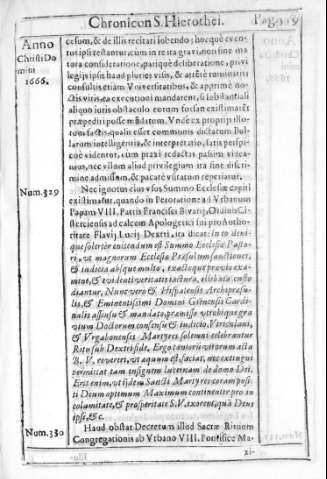 Chronicon S. Hierothei. Pag. 9
Anno
Christi Do
mini
1666.
cesum, & de illis recitari iubendo; hocquè even-
tus ipsi testantur: cum in re ita gravi non sine ma
tura consideratione, pariquè deliberatione, privi
legijs ipsis haud pluries visis, & attentè ruminatis
consultis etiam Vniversitatibus, & apprimè do-
ctis viris, ea executioni mandarent, si substantiali
aliquo iuris obstaculo eorum
præpediri posse
tis factis, qualis esset communis dictarum Bul-
larum intelligentia, & interpretatio, satis perspi-
cuè videntur, cùm praxi redactas passim vivea-
mus, nec vllum aliud privilegium ita sine discri-
mine admissum, & pacatè vsitatum reperiatur.
Num. 329
Nec ignotus eius vsus Summo Ecclesiæ capiti
existimatur, quando in Peroratione ad Vrbanum
Papam VIII. Patris Francisci Bivarij, Ordinis Ci-
sterciensis ad calcem Apologetici sui pro Autho-
ritate Flavij Lucij Dextri, ita dicat: in eo deni-
que solerter enitendum est Summo Ecclesiæ Pasto-
ri, vt magnorum Ecclesiæ Præsulum sanctiones,
& iudicia absque multo, exactoque prævio exa-
mine, & evidenti veritatis iactura, illibata custo-
diantur. Nunc verò & Hispalensis Archipræsu-
lis, & Eminentissimi Domini Giennensis Cardi-
nalis assensu & mandato præmisso vtrobique gra
vium Doctorum consensu & iudicio, Verulani,
& Vrgabonensis Martyres solemni celebrantur
Ritu sub Dextri fide. Ergo tuto ijs vtrorum alta
B. V. revereri, vt æquum est, faciat, nec extingui
permittat tam insignem lucernam de domo Dei.
Erit enim, vt ijdem Sancti Martyres coram posi-
ti Deum optimum Maximum continenter pro in
columitate, & prosperitate S. V. exorent, quâ Deus
ipse, &c.
Num. 330
Haud obstat Decretum illud Sacræ Rituum
Congregationis ab Vrbano VIII. Pontifice Ma-
xi-